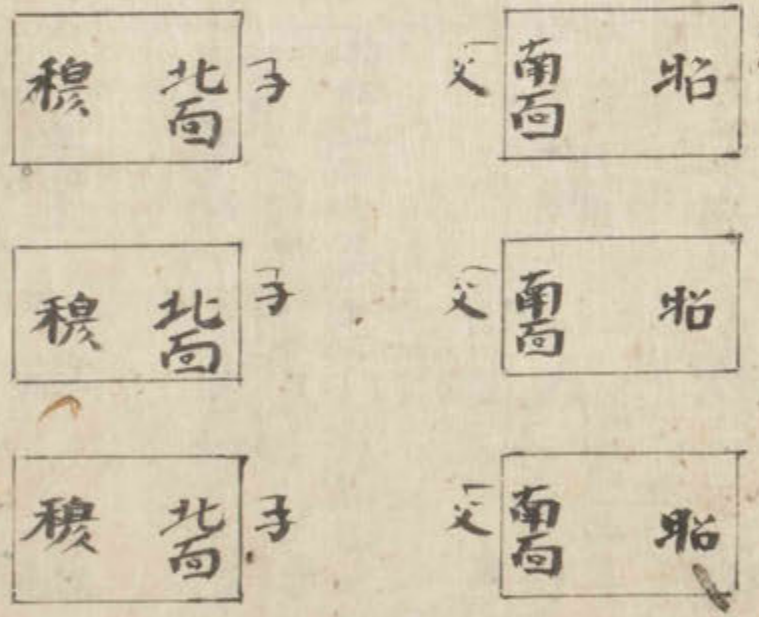 昭
南面
父
子
北面
穆
昭
南面
父
子
北面
穆
昭
南面
父
子
北面
穆